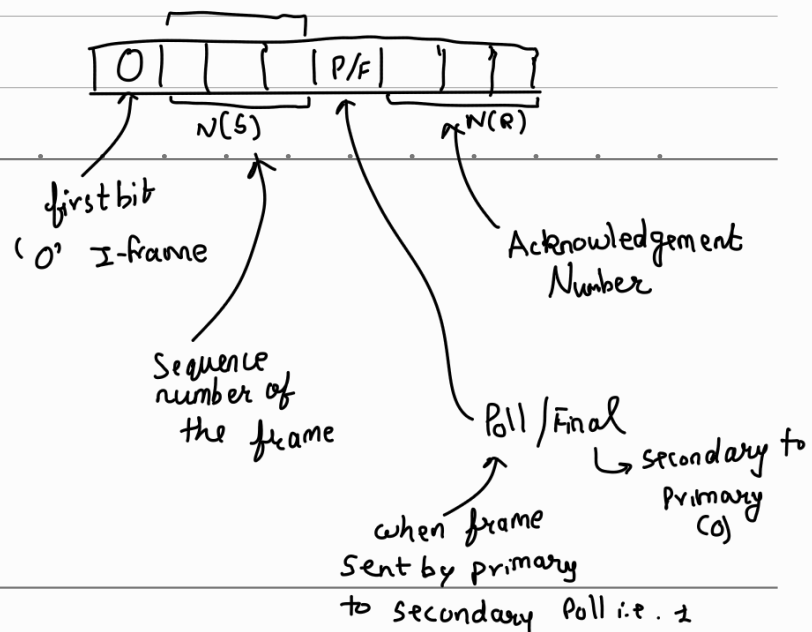 0 P/F
N(S) N(R)
first bit
'0' I-frame
Acknowledgement
Number
Sequence
number of
the frame
Poll/Final
secondary to
Primary
(0)
when frame
Sent by primary
to secondary Poll i.e. 1